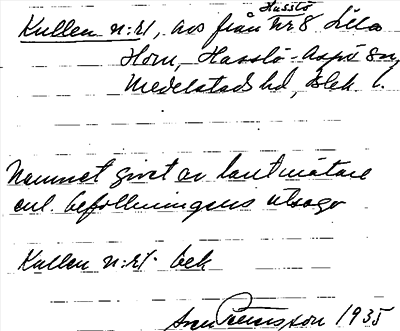 Hasslö
Kullen n:r 1, avs från Nr 8 Lilla
Horn, Hasslö-Aspö sn,
Medelstads hd, Blek. l.
Namnet givet av lantmätare
enl. befolkningens utsago
Kullen n:r 1. bek
Sven 1935